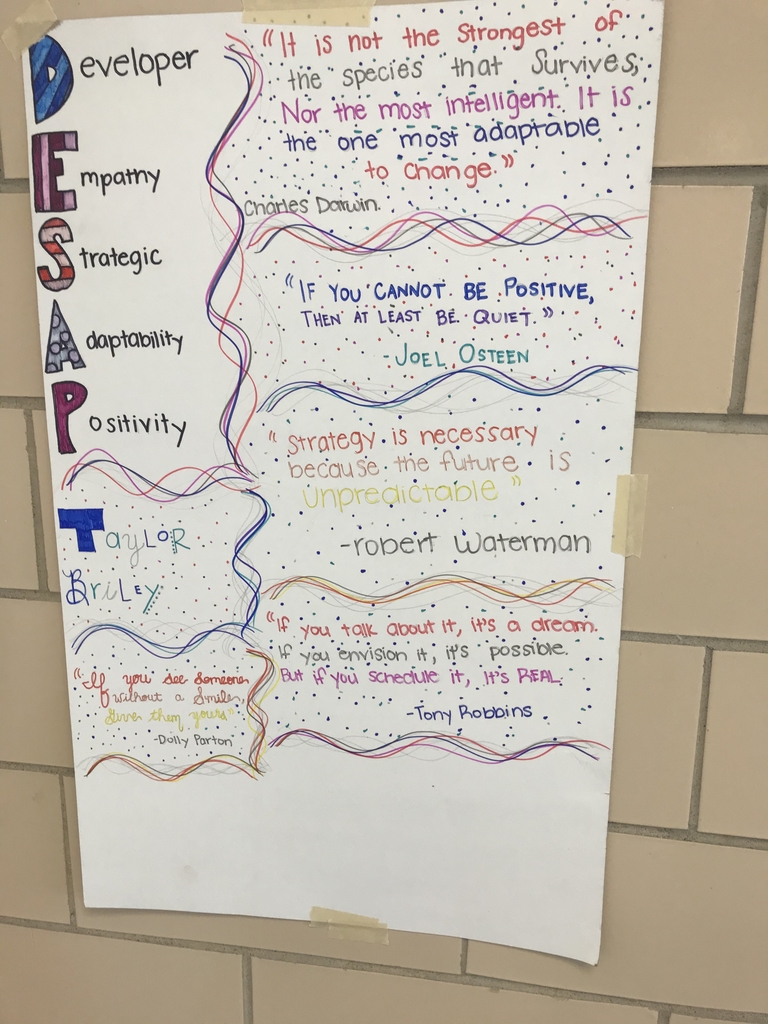 Developer
Empathy
Strategic
Adaptability
Positivity
Taylor
Briley
"If you see someone
without a smile,
Given them yours"
-Dolly Parton
"It is not the strongest of
the species that survives,
Nor the most intelligent. It is
the one most adaptable
to change."
Charles Darwin.
"IF YOU CANNOT BE POSITIVE,
THEN AT LEAST BE QUIET."
-JOEL OSTEEN
"Strategy is necessary
because the future is
Unpredictable"
-robert Waterman
"If you talk about it, it's a dream.
If you envision it, it's possible.
But if you schedule it, It's REAL.
-Tony Robbins